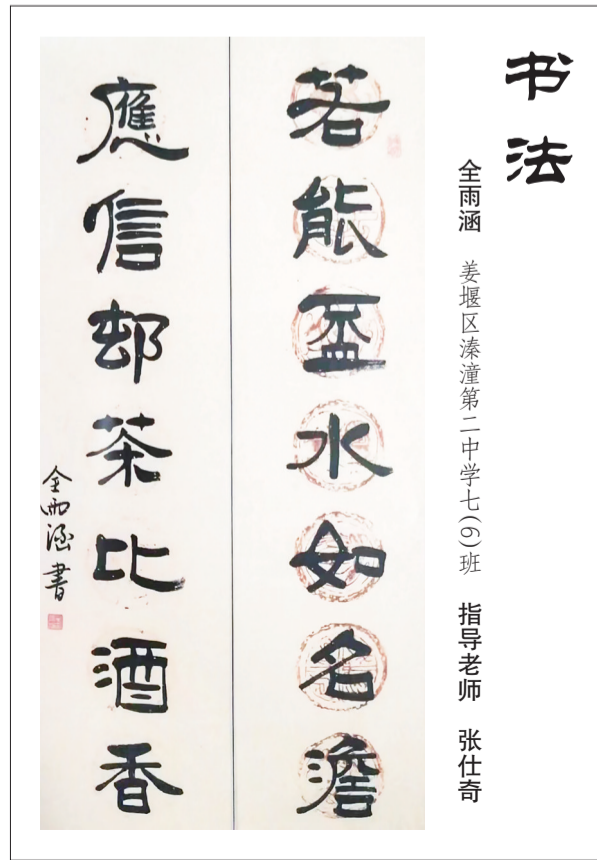 书法
全雨涵 姜堰区溱潼第二中学七(6)班 指导老师 张仕奇
若能杯水如名澹
應信邨茶比酒香
全雨涵書